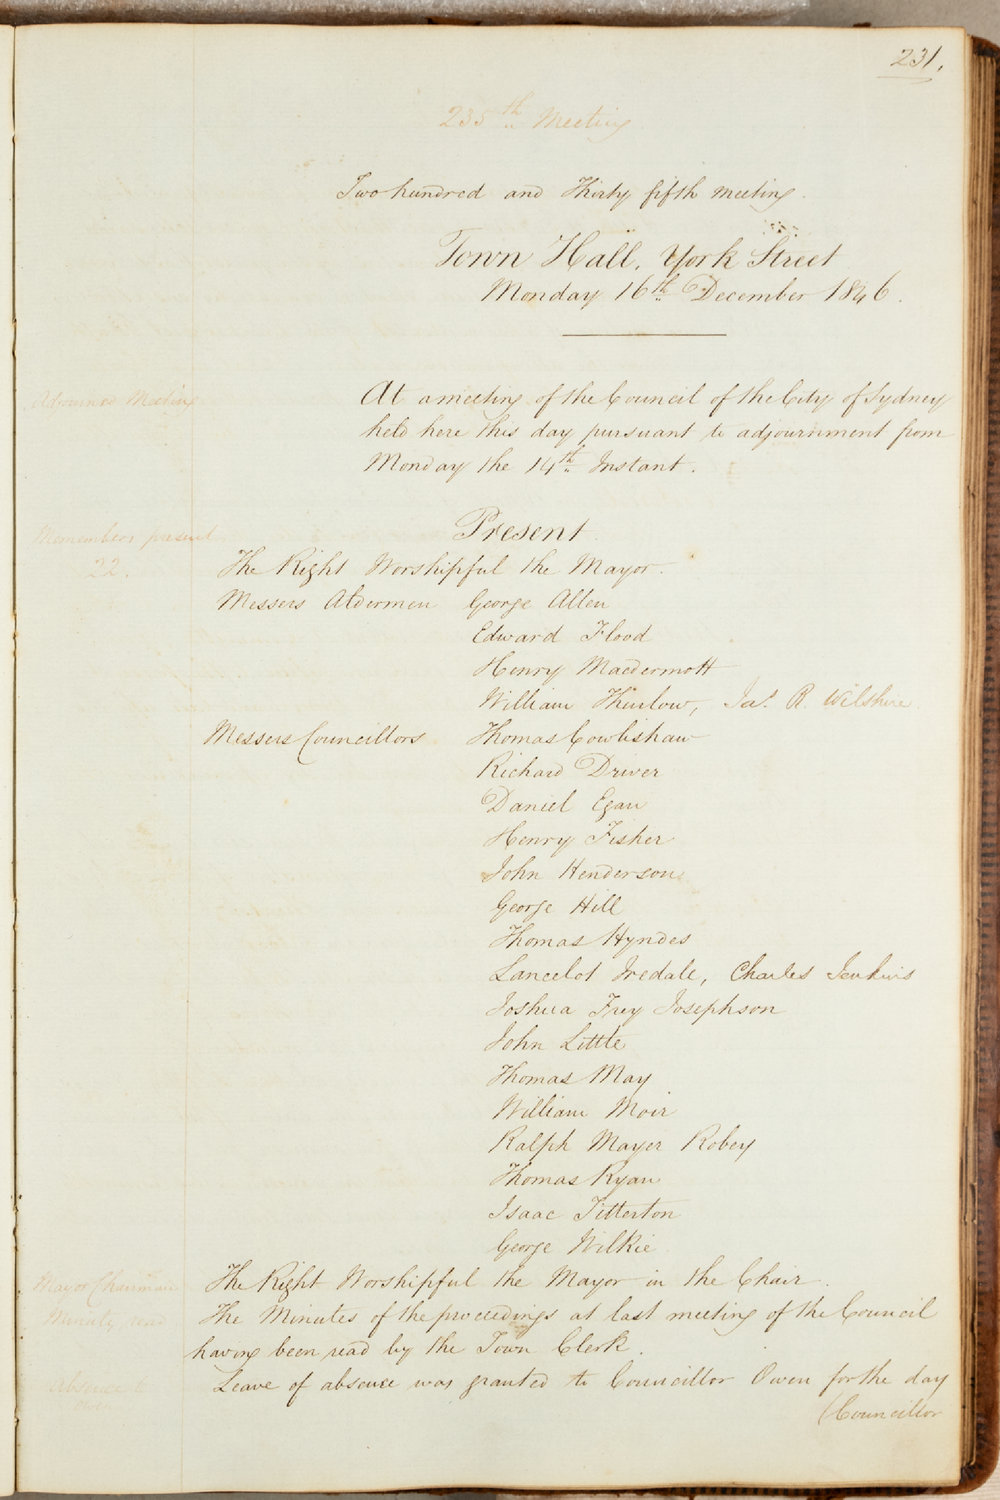 231.
235th Meeting
Two hundred and Thirty fifth meeting.
Town Hall, York Street
Monday 16th December 1846.
Adjourned Meeting
At a meeting of the Council of the City of Sydney
held here this day pursuant to adjournment from
Monday the 14th Instant.
Present
Memembers present
22.
The Right Worshipful the Mayor.
Messers Aldermen George Allen
Edward Flood
Henry Macdermott
William Thurlow, Jas. R. Wilshire.
Messers Councillors Thomas Cowlishaw
Richard Driver
Daniel Egan
Henry Fisher
John Henderson
George Hill
Thomas Hyndes
Lancelot Iredale, Charles Jenkins
Joshua Frey Josephson
John Little
Thomas May
William Moir
Ralph Mayer Robey
Thomas Ryan
Isaac Titterton
George Wilkie
Mayor Chairman
The Right Worshipful the Mayor in the Chair.
Minutes read
The Minutes of the proceedings at last meeting of the Council
having been read by the Town Clerk.
Absence to
Leave of absence was granted to Councillor Owen for the day
(Councillor